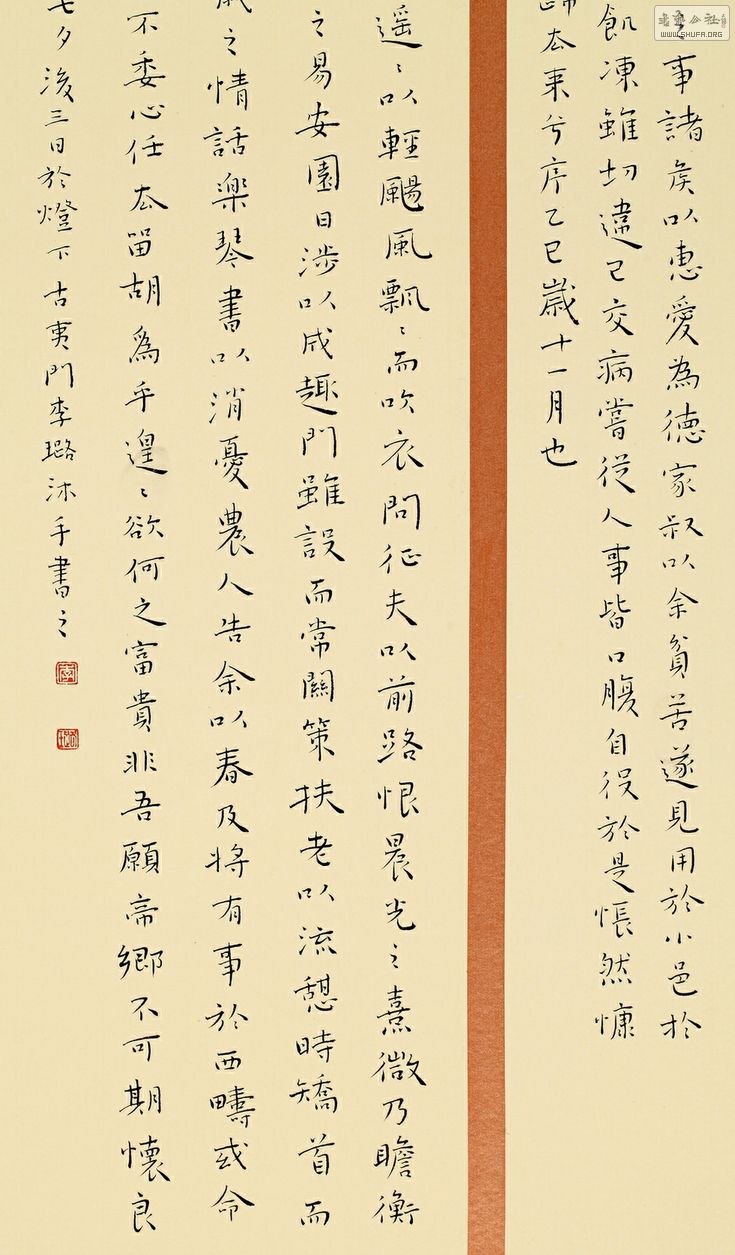 之事諸矦以惠愛為德家叔以余貧苦遂見用於小邑於
飢凍雖切違己交病嘗從人事皆口腹自役於是悵然慷
歸去来兮序乙巳歲十一月也
遥〻以輕颺風飄〻而吹衣問征夫以前路恨晨光之熹微乃瞻衡
之易安園日涉以成趣門雖設而常關策扶老以流憩時矯首而
戚之情話樂琴書以消憂農人告余以春及將有事於西疇或命
不委心任去留胡為乎遑〻欲何之富貴非吾願帝鄉不可期懷良
七夕後三日於燈下古夷門李璐沐手書之
李
WWW.SHUFA.ORG